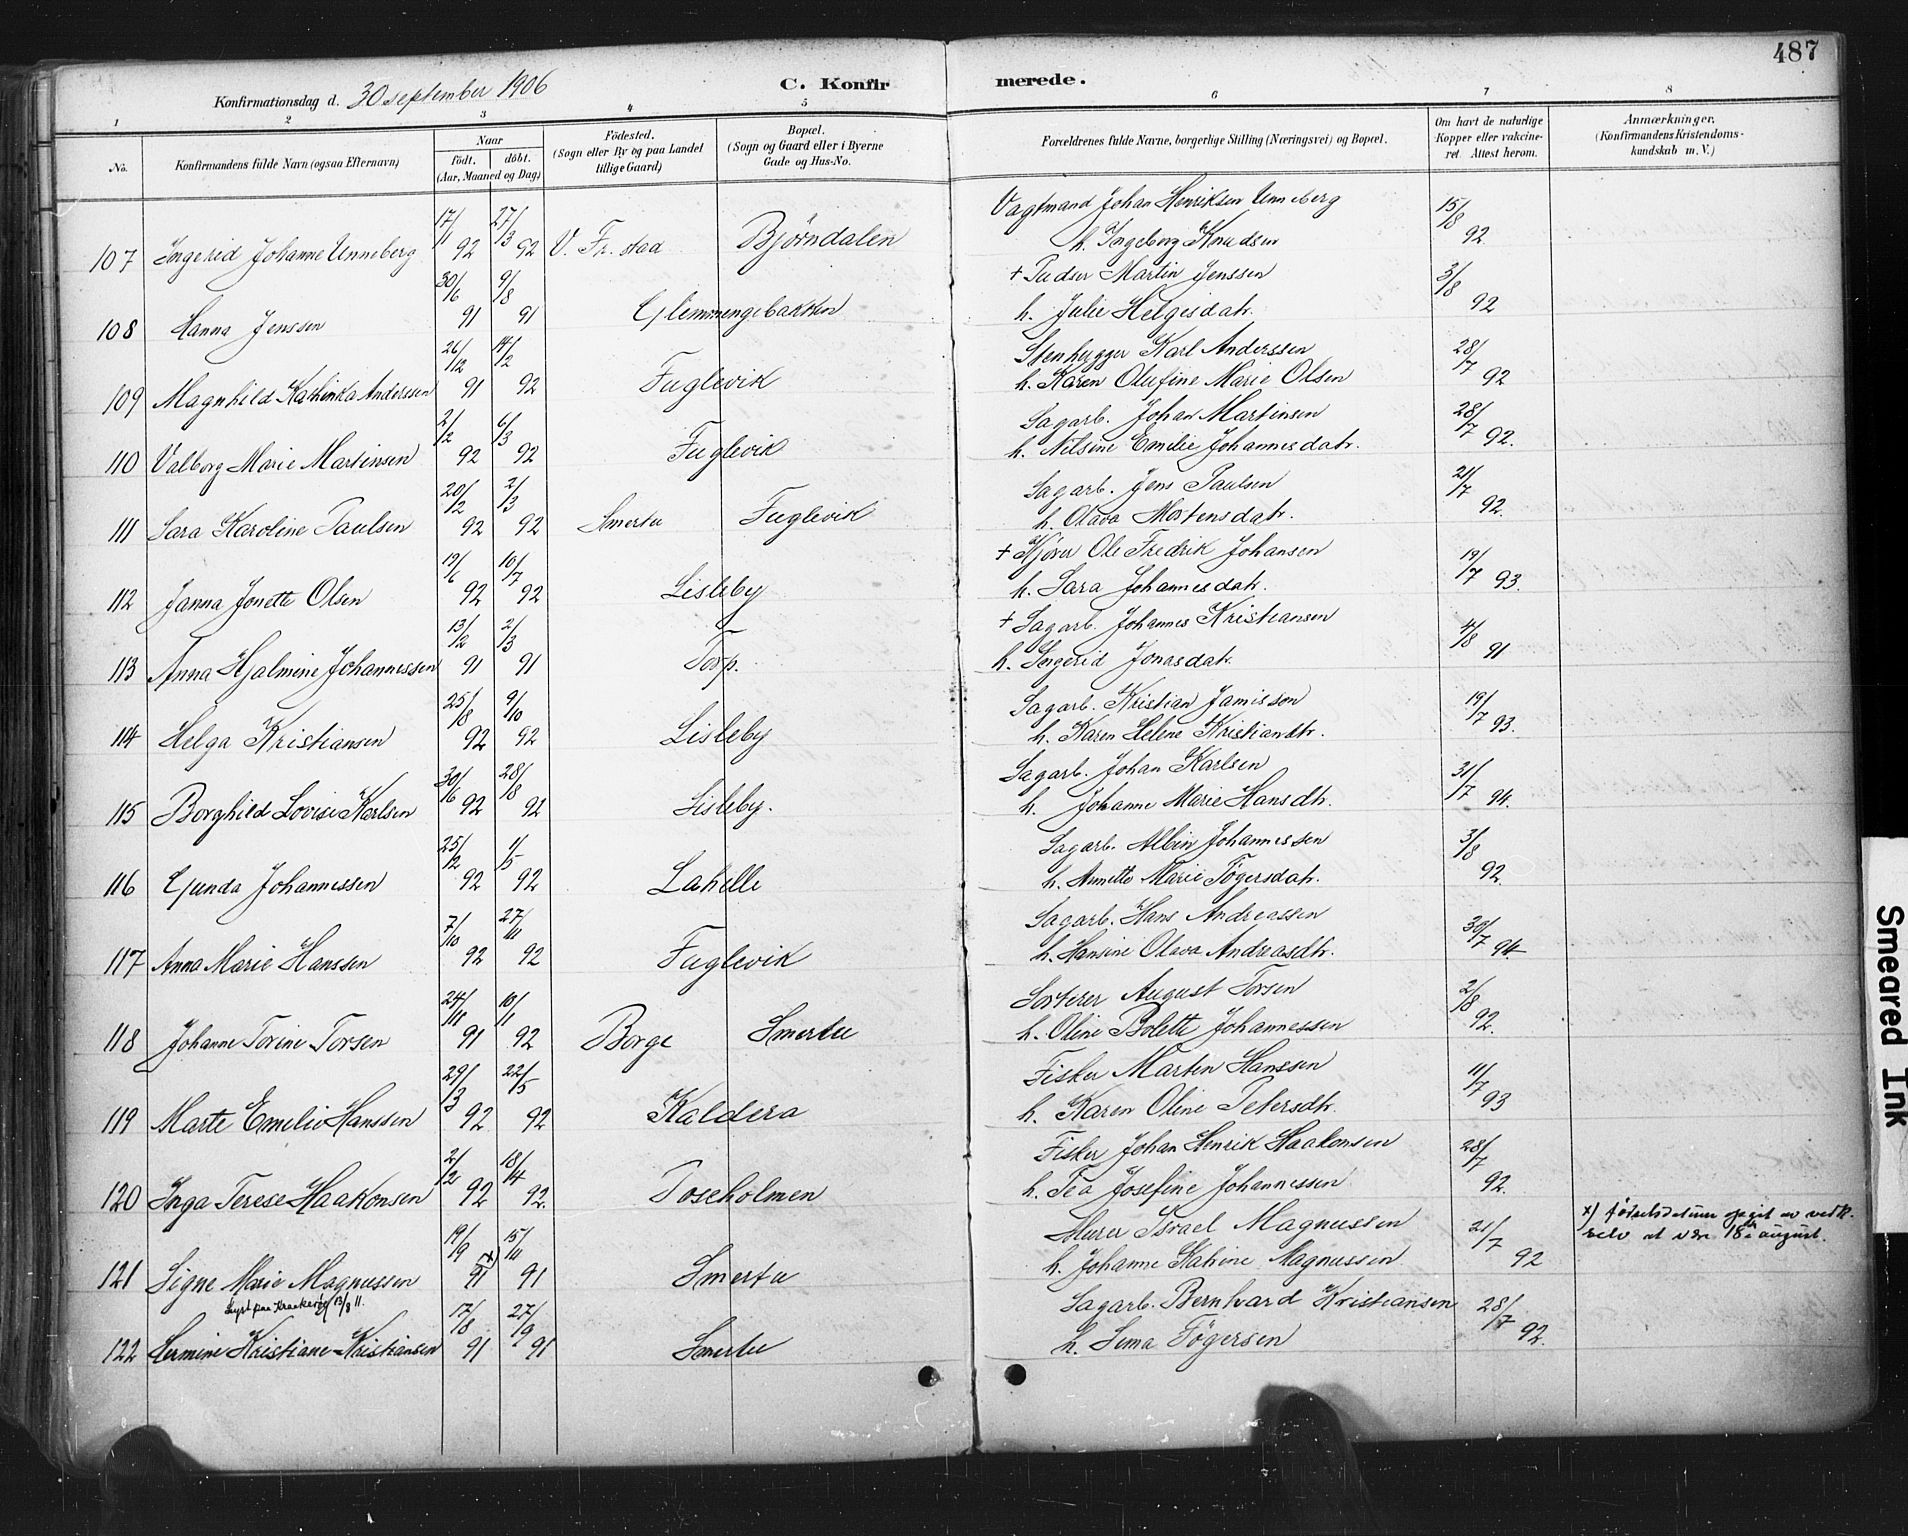 487
Konfirmationsdag d. 30 september 1906
C. Konfirmerede.
1 2 3 4 5 6 7 8
No.
Konfirmandens fulde Navn (ogsaa Efternavn)
Naar
født. døbt.
(Aar, Maaned og Dag)
Fødested.
(Sogn eller By og paa Landet
tillige Gaard)
Bopæl.
(Sogn og Gaard eller i Byerne
Gade og Hus-No.
Forældrenes fulde Navne, borgerlige Stilling (Næringsvei) og Bopæl.
Om havt de naturlige
Kopper eller vakcine-
ret. Attest herom.
Anmærkninger.
(Konfirmandens Kristendoms-
kundskab m. V.)
107 Ingerid Johanne Unneberg 17/11 92 27/3 92 V. Fr. stad Bjørndalen Vagtmand Johan Henriksen Unneberg 15/8 92
h. Ingeborg Knudsen
108 Hanna Jenssen 30/6 91 9/8 91 Glemmengebakken + Pudser Martin Jenssen 3/8 92
h. Julie Helgesdatr.
109 Magnhild Kathinka Anderssen 26/12 91 14/2 92 Fuglevik Stenhugger Karl Anderssen 28/7 92
h. Karen Olufine Marie Olsen
110 Valborg Marie Martinsen 2/2 92 6/3 92 Fuglevik Sagarb. Johan Martinsen 28/7 92.
h. Nilsine Emilie Johannesdatr.
111 Sara Karoline Paulsen 20/2 92 2/3 92 Smertu Fuglevik Sagarb. Jens Paulsen 21/7 92.
h. Olava Mortensdatr.
112 Janna Jonette Olsen 19/6 92 10/7 92 Lisleby + Kjører Ole Fredrik Johansen 19/7 93.
h. Sara Johannesdatr.
113 Anna Hjalmine Johannessen 13/2 91 2/3 91 Torp. + Sagarb. Johannes Kristiansen 4/8 91
h. Ingerid Jonasdatr.
114 Helga Kristiansen 25/8 92 9/10 92 Lisleby Sagarb. Kristian Jamisson 19/7 93.
h. Karen Helene Kristiandtr.
115 Borghild Lovise Karlsen 30/6 92 28/8 92 Lisleby. Sagarb. Johan Karlsen 31/7 94.
h. Johanne Marie Hansdtr.
116 Gunda Johannessen 25/2 92 1/5 92 Lahelle Sagarb. Albin Johannessen 3/8 92.
h. Annette Marie Tøgersdatr.
117 Anna Marie Hanssen 7/10 92 27/11 92 Fuglevik Sagarb. Hans Andreassen 30/7 94.
h. Hansine Olava Andreasdtr.
118 Johanne Torine Torsen 24/11 91 10/1 92 Borge Smertu Sorterer August Torsen 2/8 92.
h. Oline Bolette Johannessen
119 Marte Emelie Hanssen 29/3 92 22/5 92 Kaldera Fisker Martin Hanssen 11/7 93
h. Karen Oline Petersdtr.
120 Inga Terese Haakonsen 2/2 92 18/4 92. Toseholmen Fisker Johan Henrik Haakonsen 28/7 92.
h. Tea Josefine Johannessen
121 Signe Marie Magnussen 19/9 x) 91 15/11 91 Smertu Murer Israel Magnussen 21/7 92
h. Johanne Katrine Magnussen
x) fødselsdatum opgit av vedk.
selv at være 18de august.
lyst paa Kraakerøy 13/8 11.
122 Hermine Kristiane Kristiansen 17/8 91 27/9 91 Smertu Sagarb. Bernhard Kristiansen 28/7 92.
h. Sina Tøgersen
Smeared Ink